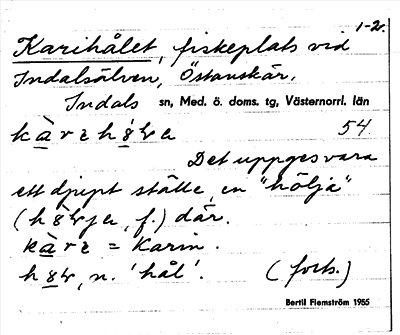 1-2.
Karihålet, fiskeplats vid
Indalsälven, Östanskär.
Indals sn, Med. ö. doms. tg, Västernorrl. län
54
Det uppges vara
ett djupt ställe, en "hölja"
f.) där.
= Karin.
n. 'hål'. (forts.)
Bertil Flemström 1955